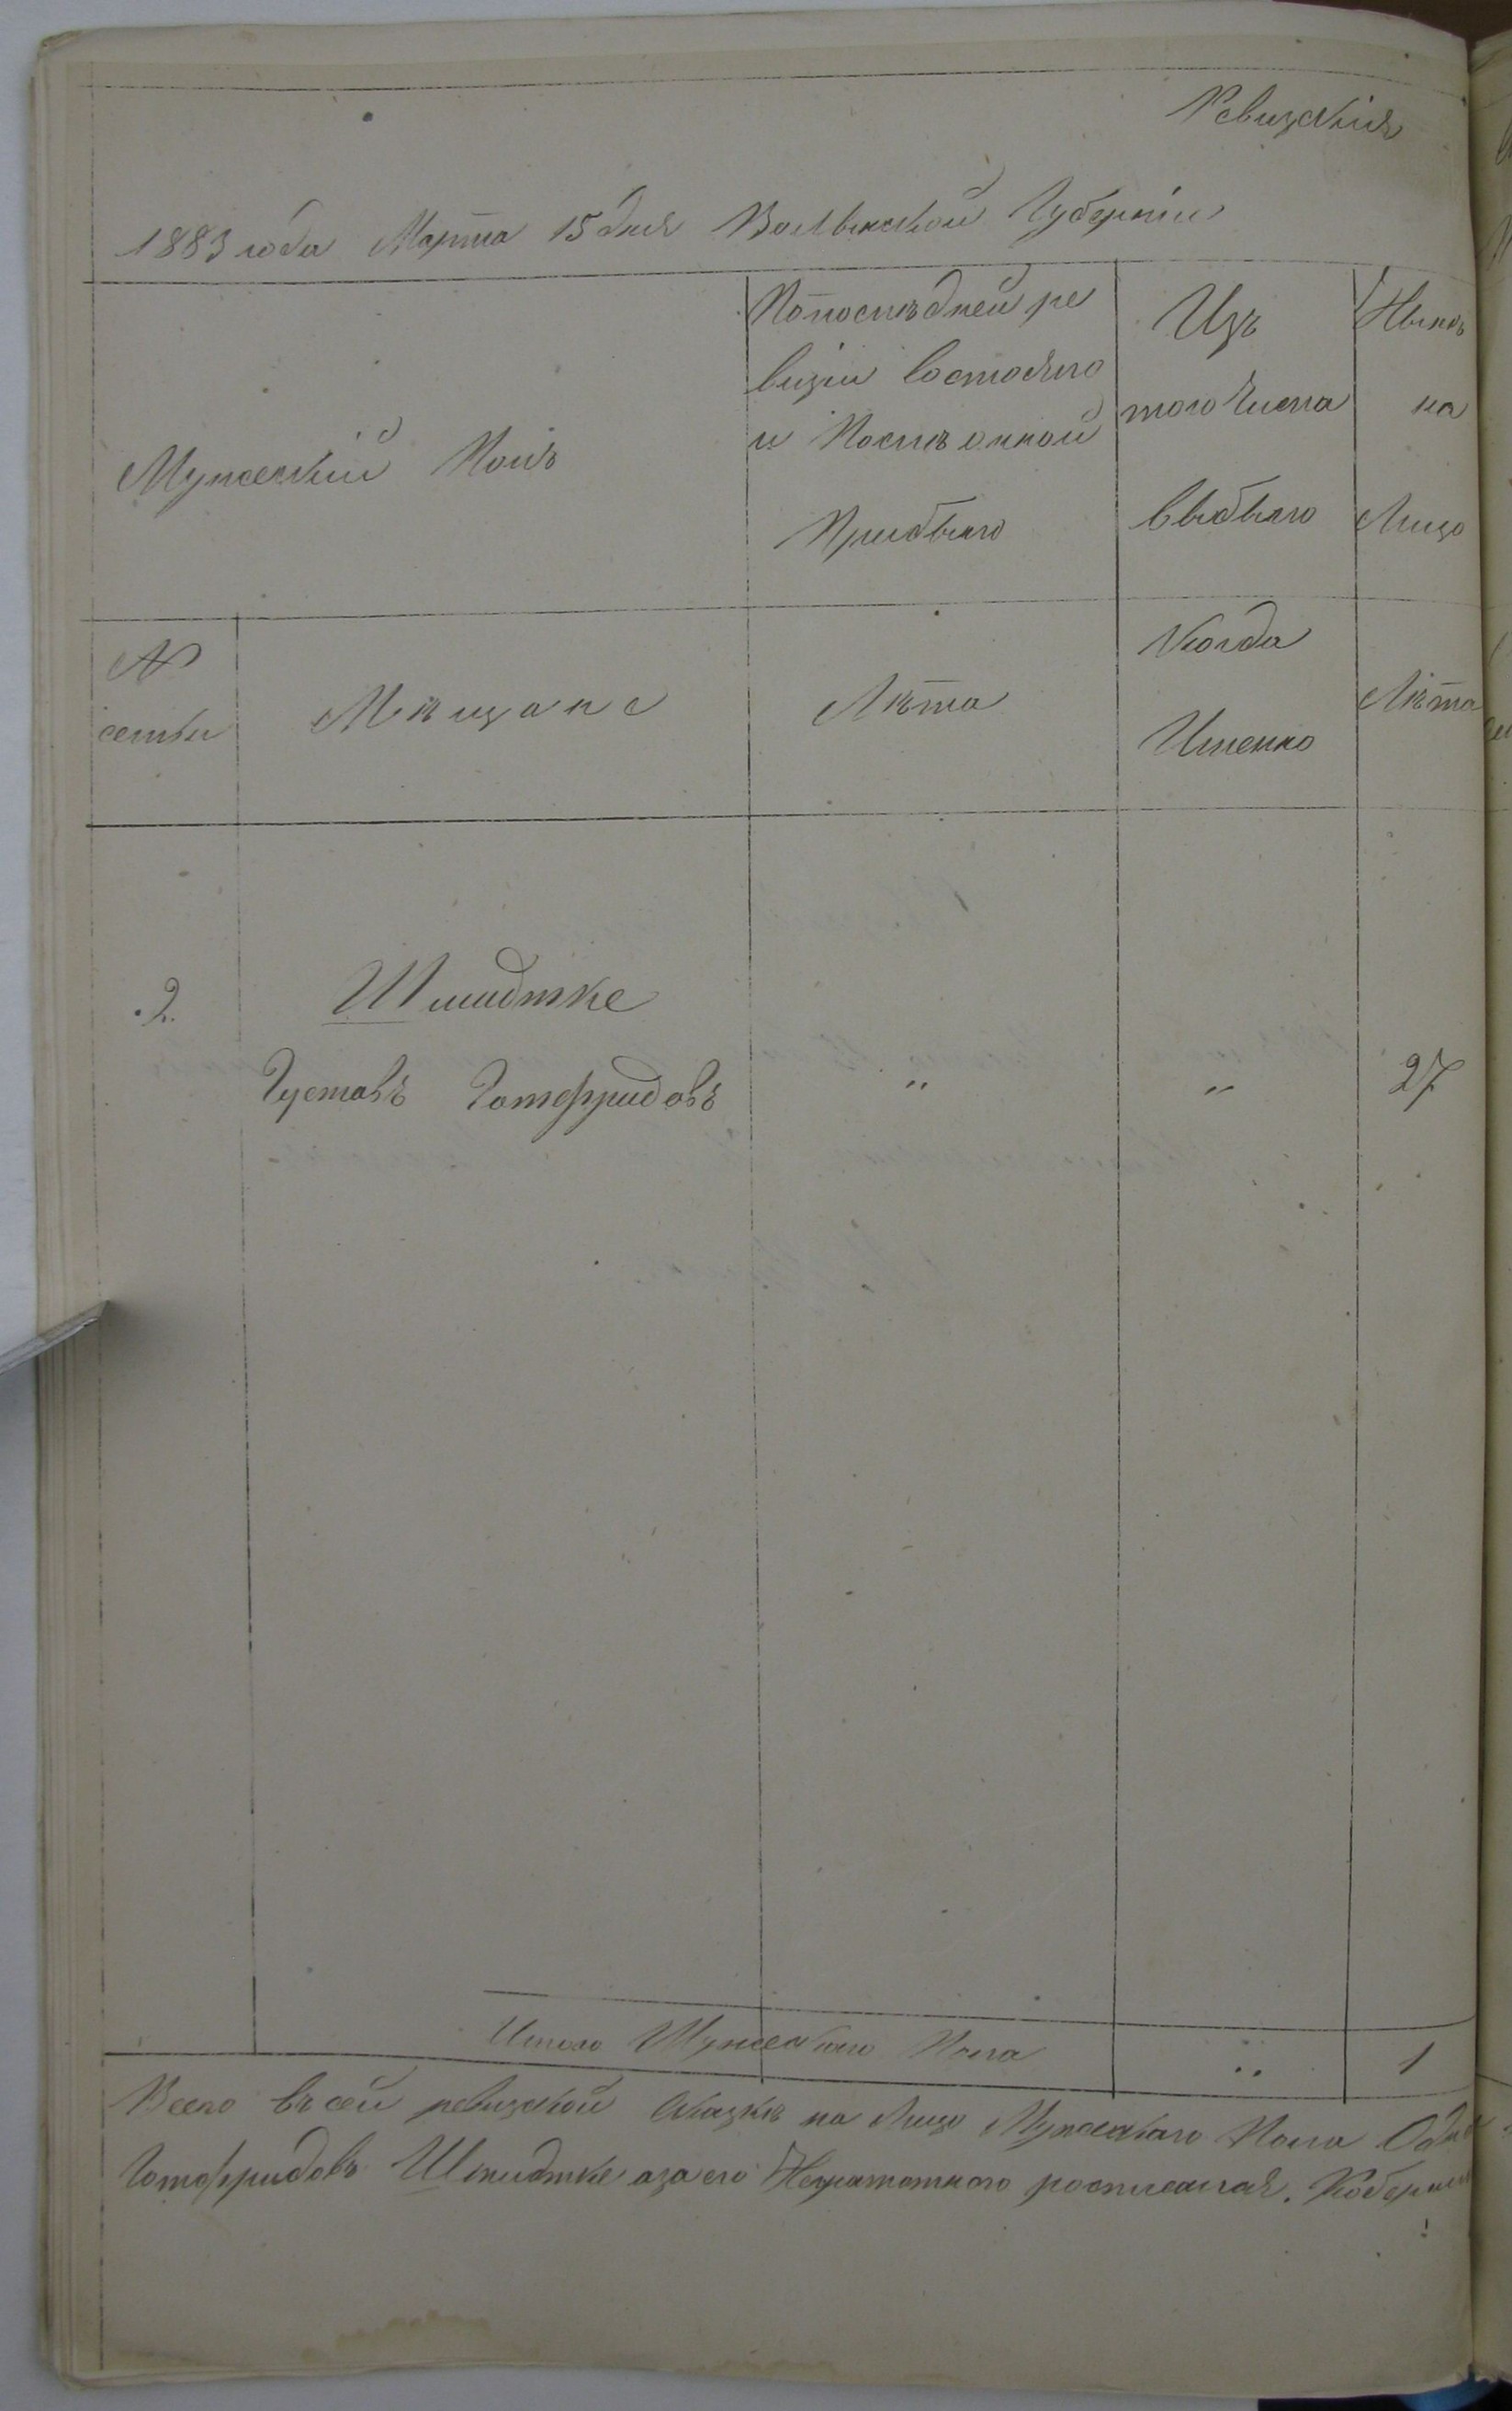 Ревизская
1883 года Марта 15 дня Волынской Губерніи
Мужескій Полъ
По последней ре
визіи состояло
и После оной
Прибыло
Изъ
того числа
выбыло
Нынѣ
на
Лицо
№
семьи
Мѣщане
Лѣта
Когда
Именно
Лѣта
2.
Шмидтке
Густавъ Готфридовъ " " 27
Итого Мужескаго Пола " 1
Всего въ сей ревизской Сказкѣ на Лицо Мужескаго Пола
Готфридовъ Шмидтке а за его Неграмотного росписался.